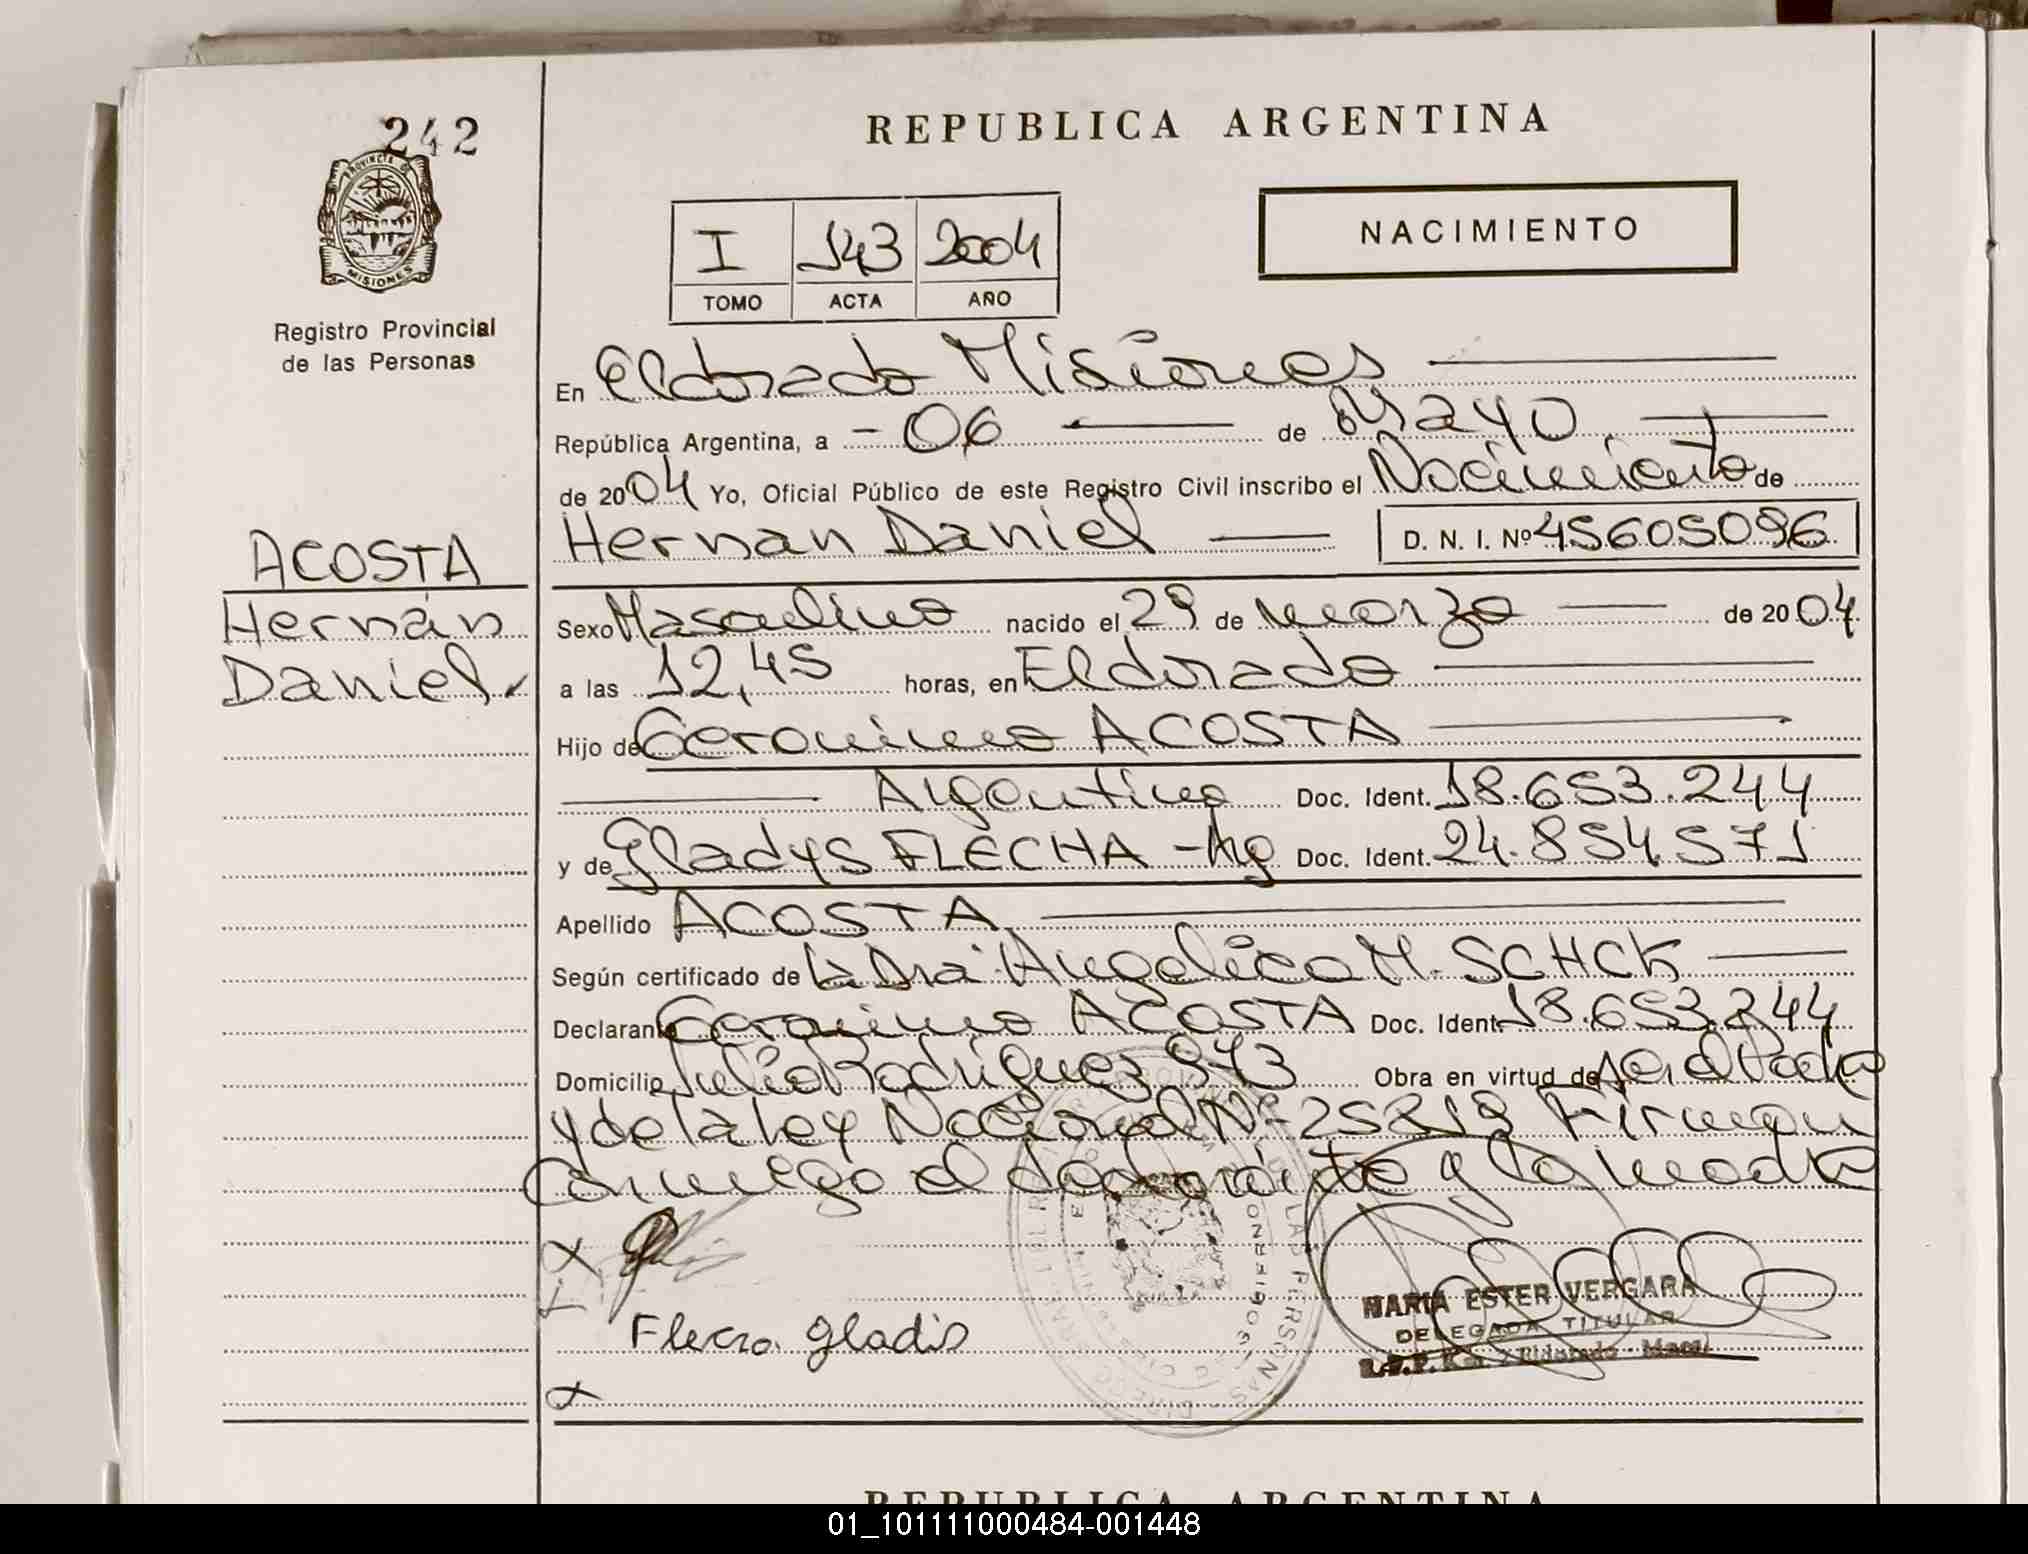 242
REPUBLICA ARGENTINA
PROVINCIA DE
MISIONES
Registro Provincial
de las Personas
NACIMIENTO
I 143 2004
TOMO ACTA AÑO
En Eldorado Misiones
República Argentina, a - 06 de Mayo
de 2004 Yo, Oficial Público de este Registro Civil inscribo el Nacimiento de
Hernan Daniel D. N. I. Nº 45605096
ACOSTA
Hernán
Daniel
Sexo Masculino nacido el 29 de marzo de 2004
a las 12,45 horas, en Eldorado
Hijo de Geronimo ACOSTA
Argentino Doc. Ident. 18.653.244
y de Gladys FLECHA - Arg Doc. Ident. 24.854.571
Apellido ACOSTA
Según certificado de la Dra. Angelica M. SCHCK
Declarante Geronimo ACOSTA Doc. Ident. 18.653.244
Domicilio Julio Rodriguez 973 Obra en virtud de ser el Padre
y de la ley Nacional Nº 25819 Firman
Conmigo el declarante y la madre
Gladis
MARIA ESTER VERGARA
DELEGADA TITULAR
Eldorado
REPUBLICA ARGENTINA
01_101111000484-001448